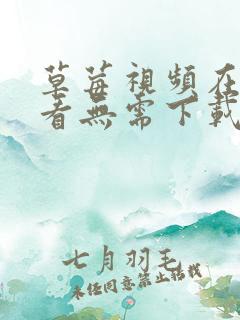 草莓視頻在
看無需下載
七月羽毛
未经同意禁止转载